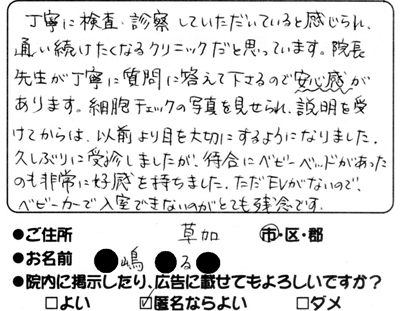 丁寧に検査・診察していただいていると感じられ、
通い続けたくなるクリニックだと思っています。院長
先生が丁寧に質問に答えて下さるので安心感が
あります。細胞チェックの写真を見せられ、説明を受
けてからは、以前より目を大切にするようになりました。
久しぶりに受診しましたが、待合にベビーベッドがあった
のも非常に好感を持ちました。ただEVがないので、
ベビーカーで入室できないのがとても残念です。
●ご住所 草加 市・区・郡
●お名前 ●嶋●る●
●院内に掲示したり、広告に載せてもよろしいですか?
□よい ☑匿名ならよい □ダメ